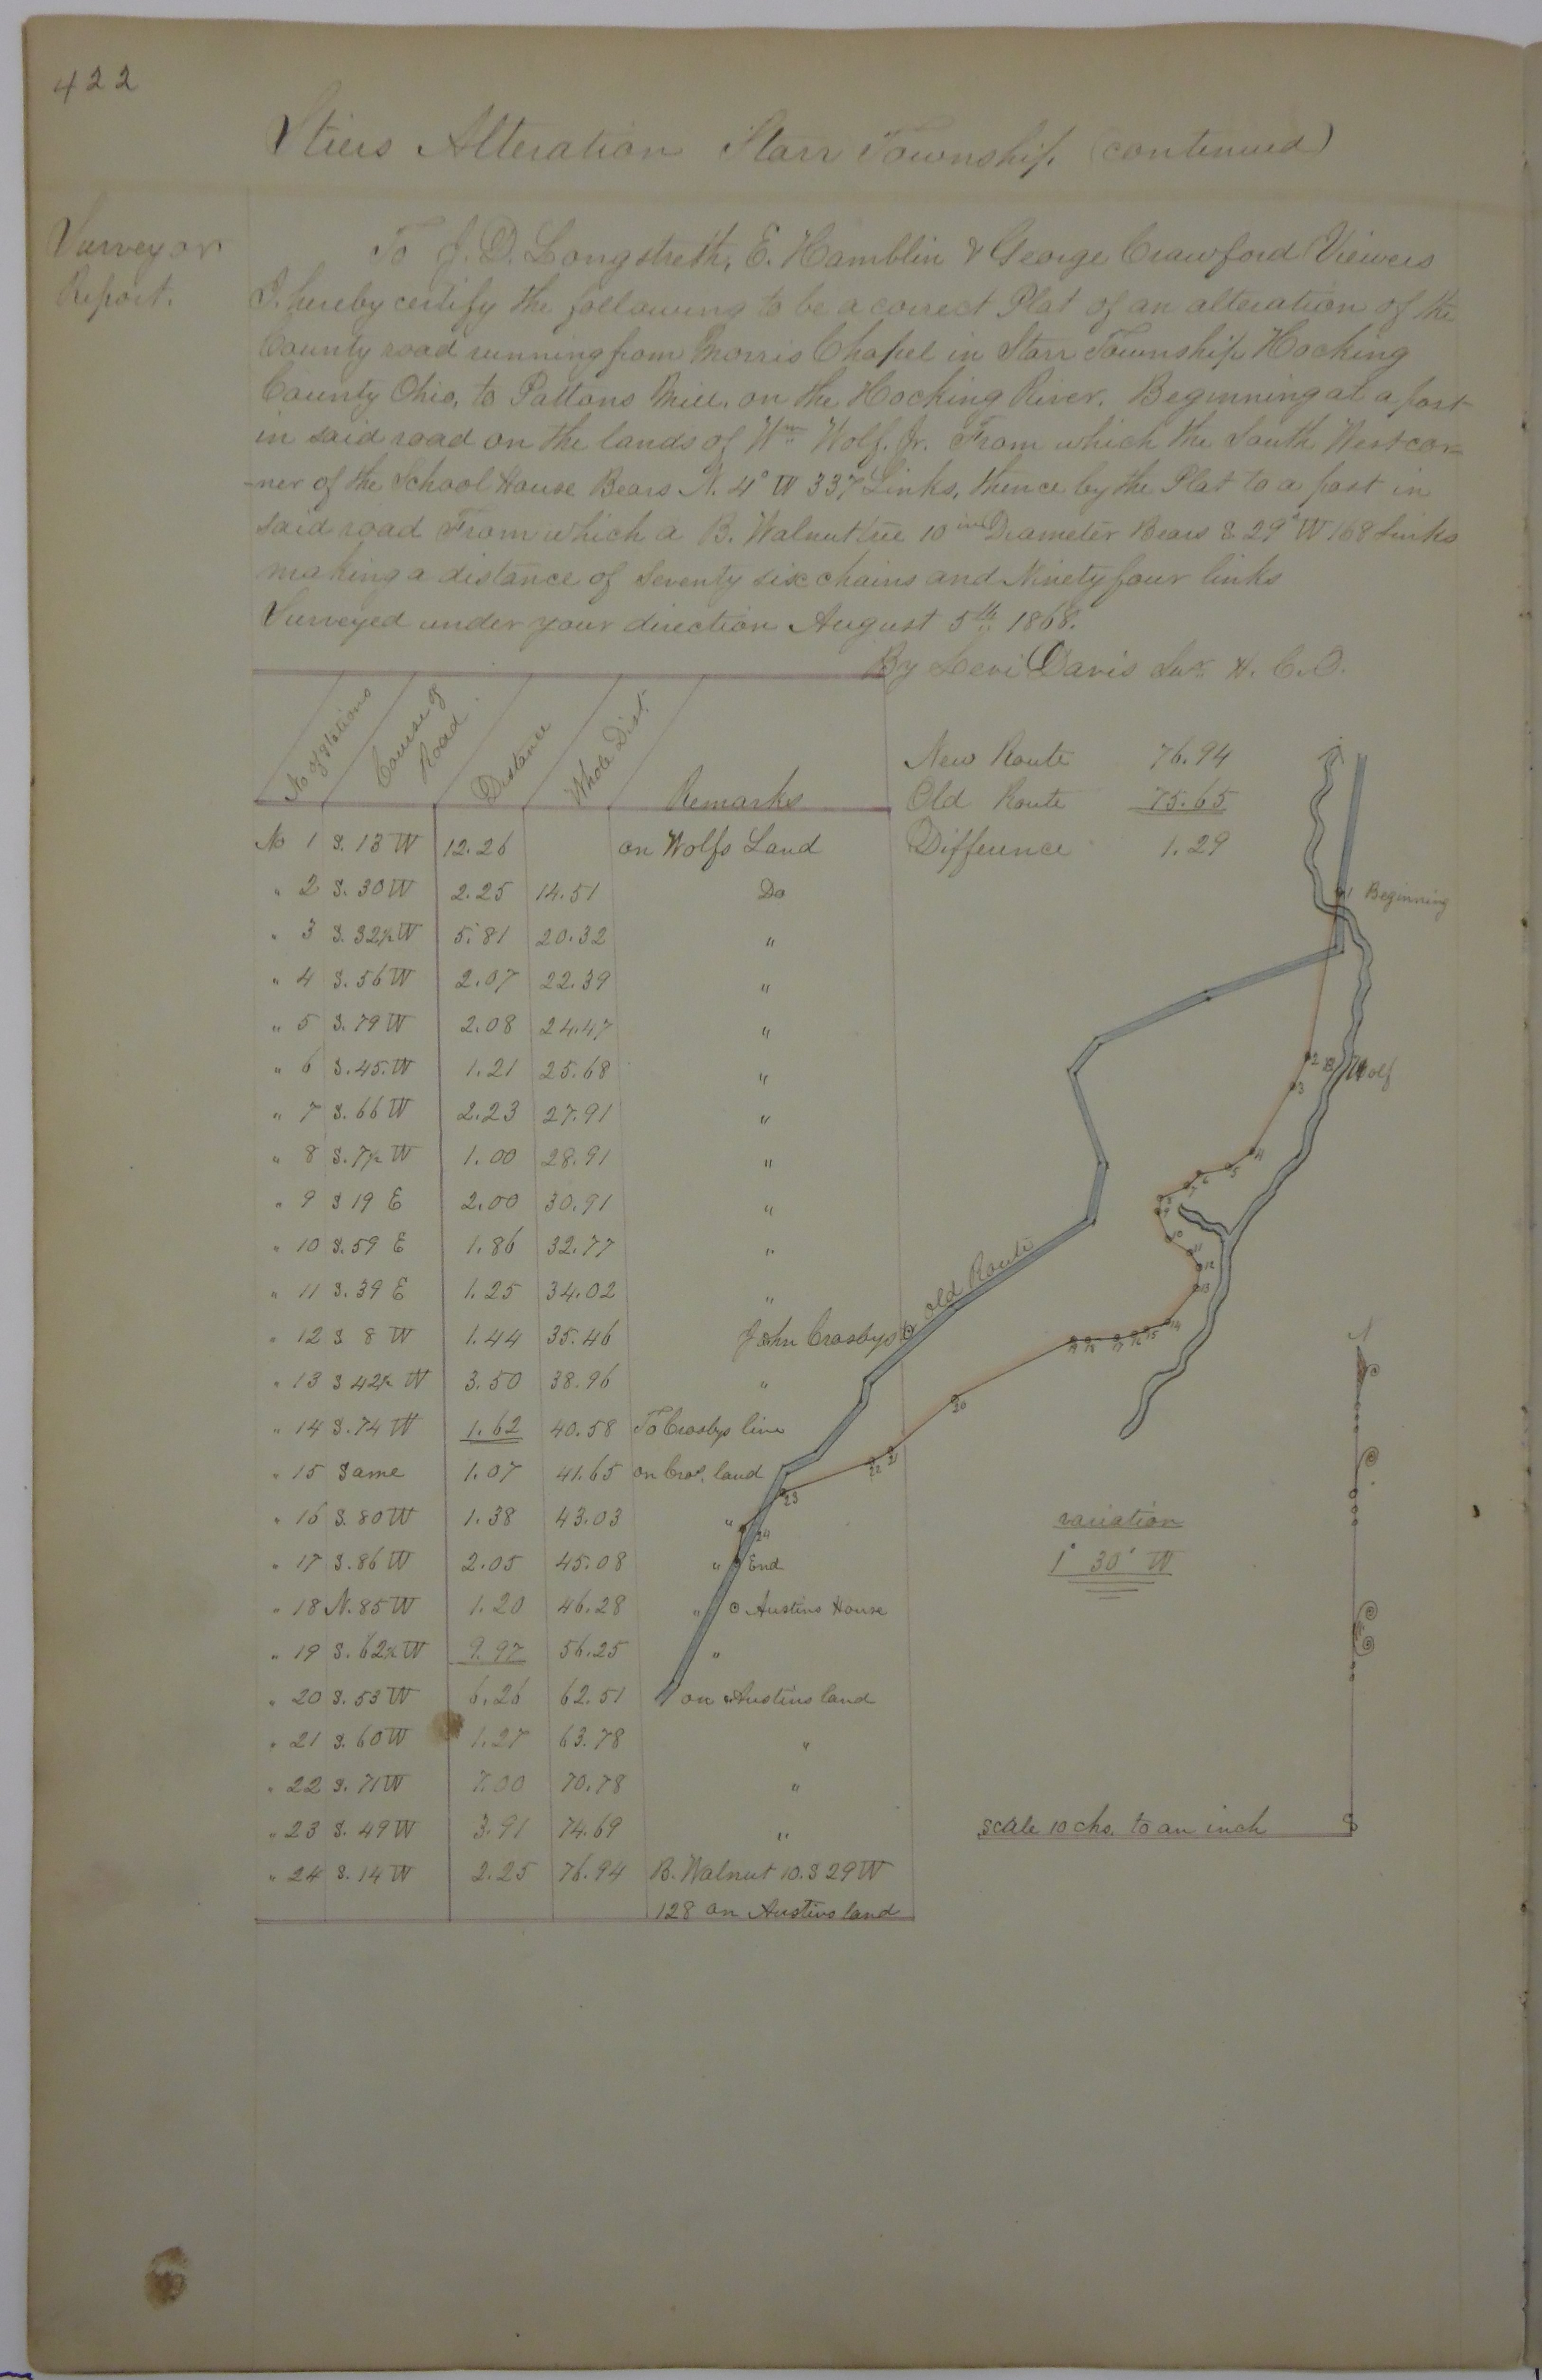 422
Stiers Alteration Starr Township (continued)
Surveyor
Report.
To J. D. Longstreth, E. Hamblin & George Crawford Viewers
I hereby certify the following to be a correct Plat of an alteration of the
County road running from Morris Chapel in Starr Township Hocking
County Ohio, to Pattons Mill, on the Hocking River. Beginning at a post
in said road on the lands of Wm Wolf. Jr. From which the South West cor=
-ner of the School House Bears N. 4° W 337 Links, thence by the Plat to a post in
said road From which a B. Walnut tree 10 in Diameter Bears S. 29° W 168 Links
making a distance of Seventy six chains and Ninety four links
Surveyed under your direction August 5th 1868.
By Levi Davis Sur. H. C. O.
No of Stations Course of Road Distance Whole Dist. Remarks
New Route 76.94
Old Route 75.65
Difference 1.29
No 1 S. 13 W 12.26 on Wolfs Land
" 2 S. 30 W 2.25 14.51 Do
" 3 S. 32½ W 5.81 20.32 "
" 4 S. 56 W 2.07 22.39 "
" 5 S. 79 W 2.08 24.47 "
" 6 S. 45. W 1.21 25.68 "
" 7 S. 66 W 2.23 27.91 "
" 8 S. 7½ W 1.00 28.91 "
" 9 S 19 E 2.00 30.91 "
" 10 S. 59 E 1.86 32.77 "
" 11 S. 39 E 1.25 34.02 "
" 12 S 8 W 1.44 35.46 John Crosbys
" 13 S 42½ W 3.50 38.96 "
" 14 S. 74 W 1.62 40.58 To Crosbys line
" 15 Same 1.07 41.65 on Cros. land
" 16 S. 80 W 1.38 43.03 "
" 17 S. 86 W 2.05 45.08 "
" 18 N. 85 W 1.20 46.28 "
" 19 S. 62½ W 9.97 56.25 "
" 20 S. 53 W 6.26 62.51 on Austins land
" 21 S. 60 W 1.27 63.78 "
" 22 S. 71 W 7.00 70.78 "
" 23 S. 49 W 3.91 74.69 "
" 24 S. 14 W 2.25 76.94 B. Walnut 10. S 29 W
128 on Austins land
1 Beginning
2
Wolf
3
4
5
6
7
8
9
10
11
12
13
14
15
16
17
18
19
20
21
22
23
24
old Route
End
Austins House
N
variation
1° 30' W
scale 10 chs. to an inch
S